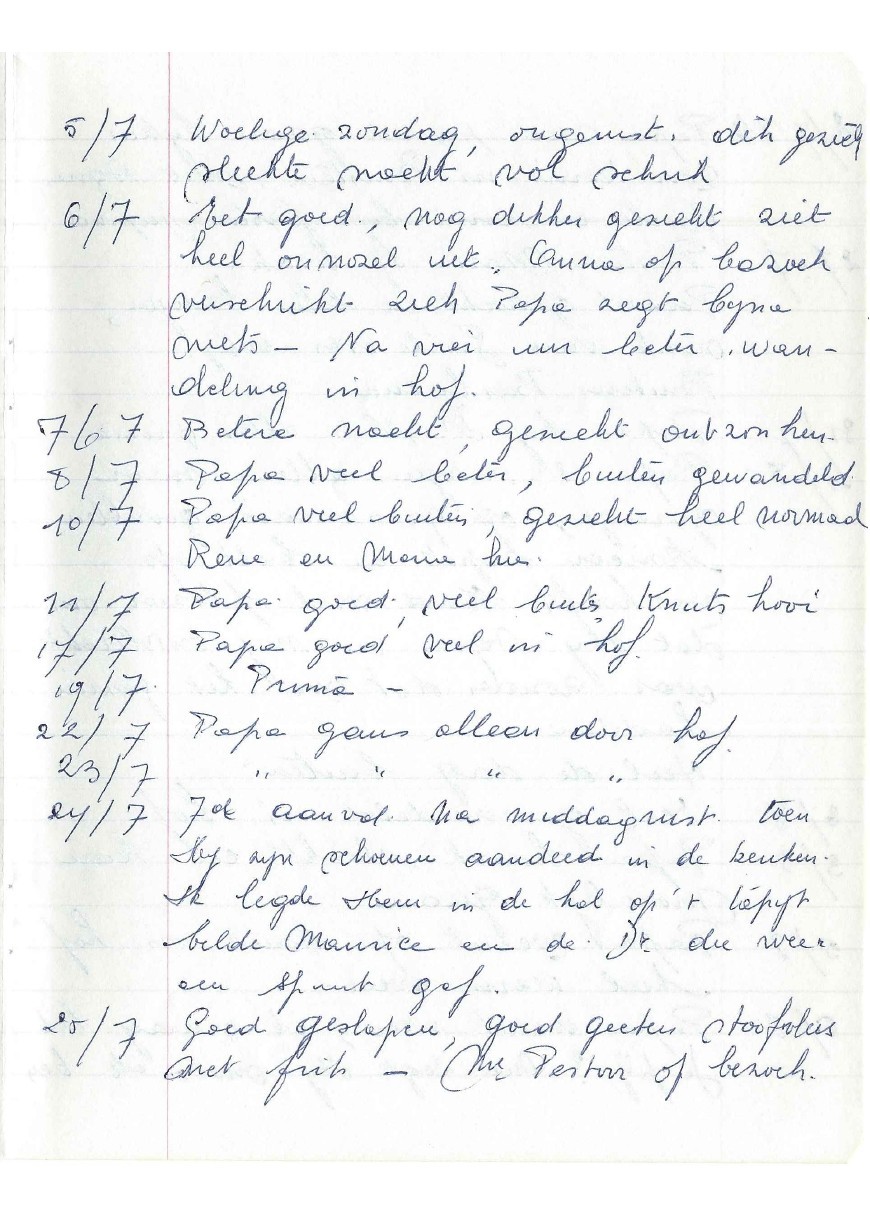 5/7 Woelige zondag, ongerust. dik gezicht
slechte nacht vol schrik
6/7 Eet goed, nog dikker gezicht ziet
heel onnozel uit. Anna op bezoek
verschrikt zich Papa zegt byna
niets — Na vier uur beter. wan-
deling in hof.
7/67 Betere nacht, gezicht ontzonken
8/7 Papa veel beter, buiten gewandeld.
10/7 Papa veel buiten, gezicht heel normaal
Rene en Maria hier.
11/7 Papa goed, veel buiten hooi
17/7 Papa goed veel in hof.
19/7. Prima —
22/7 Papa gans alleen door hof.
23/7 " " " "
24/7 7de aanval na middagrust. toen
Hy zyn schoenen aandeed in de keuken.
Ik legde Hem in de hal op 't tapyt
belde Maurice en de Dr die weer
een spuit gaf.
25/7 Goed geslapen, goed geeten stoofvlees
met frit — Mr Pastoor op bezoek.